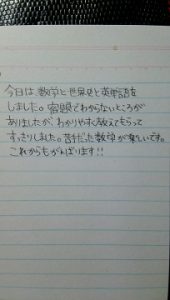 今日は数学と世界史と英単語を
しました。宿題でわからないところが
ありましたが、わかりやすく教えてもらって
すっきりしました。苦手だった数学が楽しいです。
これからもがんばります!!